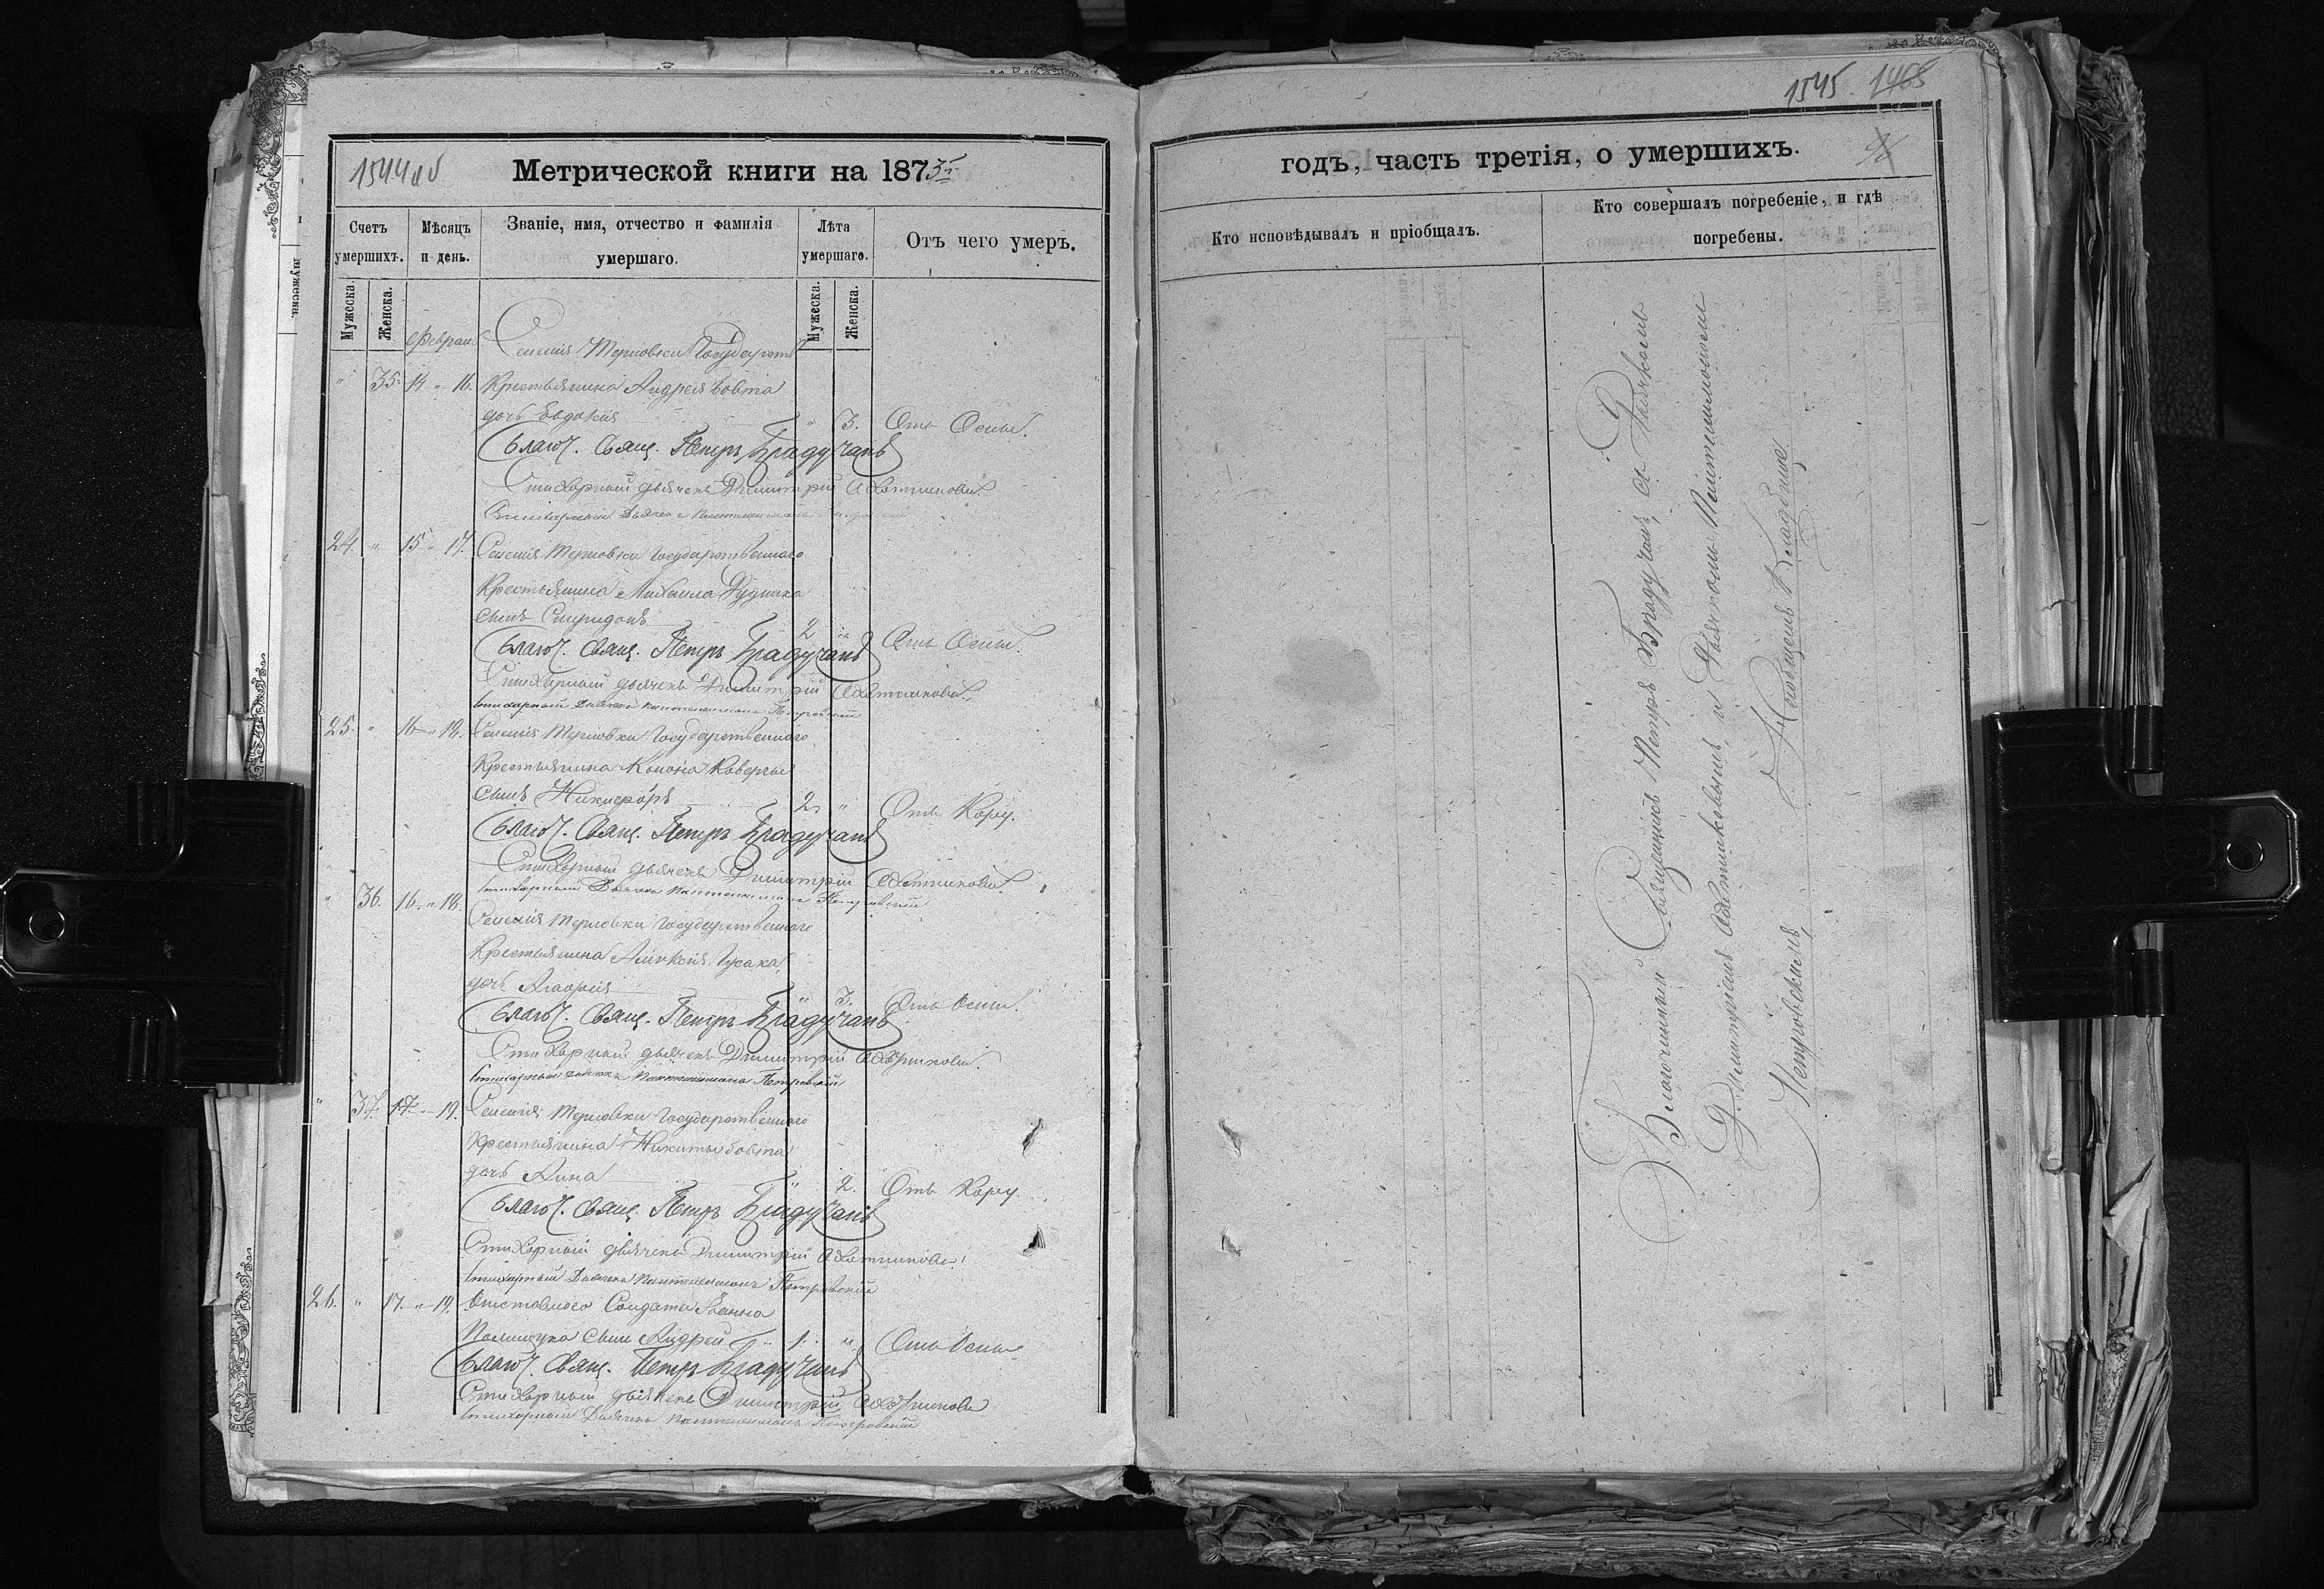 1544 об
Метрической книги на 1875
Счетъ умершихъ.
Мѣсяцъ и день.
Званіе, имя, отчество и фамилія умершаго.
Лѣта умершаго.
Отъ чего умеръ.
Мужеска.
Женска.
Мужеска.
Женска.
Феврал.
Селенія Терновки Государств
" 35. 14 " 16. Крестьянина Андрея Бовта
дочь Евдокія " 3. Отъ Оспы.
Благоч. Свящ. Петръ Брадучанъ
Стихарный дьячекъ Димитрій
Стихарный Дьячекъ Пантелеимонъ Петровскій
24. " 15 " 17. Селенія Терновки Государственнаго
Крестьянина Михаила Дудника
сынъ Спиридонъ 2 " Отъ Оспы.
Благоч. Свящ. Петръ Брадучанъ
Стихарный дьячекъ Димитрій
Стихарный Дьячекъ Пантелеимонъ Петровскій
25. " 16 " 18. Селенія Терновки Государственнаго
Крестьянина Конона Коверги
сынъ Никифоръ 2 " Отъ Кору.
Благоч. Свящ. Петръ Брадучанъ
Стихарный дьячекъ Димитрій
Стихарный Дьячекъ Пантелеимонъ Петровскій
" 36. 16. " 18. Селенія Терновки Государственнаго
Крестьянина Алексія Гусака
дочь Агафія " 3. Отъ Оспы.
Благоч. Свящ. Петръ Брадучанъ
Стихарный дьячекъ Димитрій
Стихарный Дьячекъ Пантелеимонъ Петровскій
" 37. 17. " 19. Селенія Терновки Государственнаго
Крестьянина Никиты Бовта
дочь Анна " 2. Отъ Кору.
Благоч. Свящ. Петръ Брадучанъ
Стихарный дьячекъ Димитрій
Стихарный Дьячекъ Пантелеимонъ Петровскій
26. " 17. " 19. Солдата Іоанна
сынъ Андрей 1. " Отъ Оспы
Благоч. Свящ. Петръ Брадучанъ
Стихарный дьячекъ Димитрій
Стихарный Дьячекъ Пантелеимонъ Петровскій
1545 1465
годъ, часть третія, о умершихъ.
96
Кто исповѣдывалъ и пріобщалъ.
Кто совершалъ погребеніе, и гдѣ погребены.
Благочинный Священникъ Петръ Брадучанъ, съ Дьячкомъ
Димитріемъ и Дьячкомъ Пантелеимономъ
Петровскимъ, На общемъ Кладбище
мужеска.